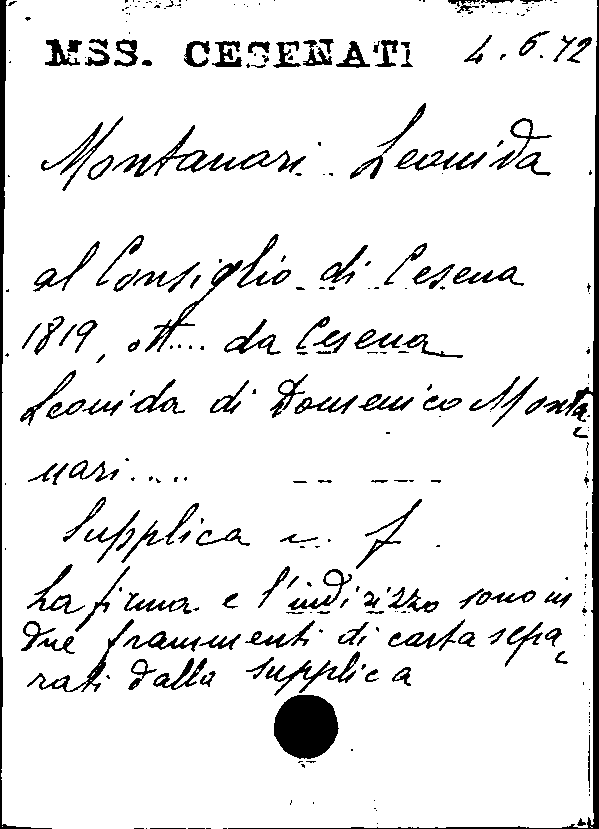 MSS. CESENATI 4.6.72
Montanari Leonida
al Consiglio di Cesena
1819, ott.... da Cesena
Leonida di Domenico Monta-
nari.....
Supplica f.
La firma e l'indirizzo sono in
due frammenti di carta sepa-
rati dalla supplica